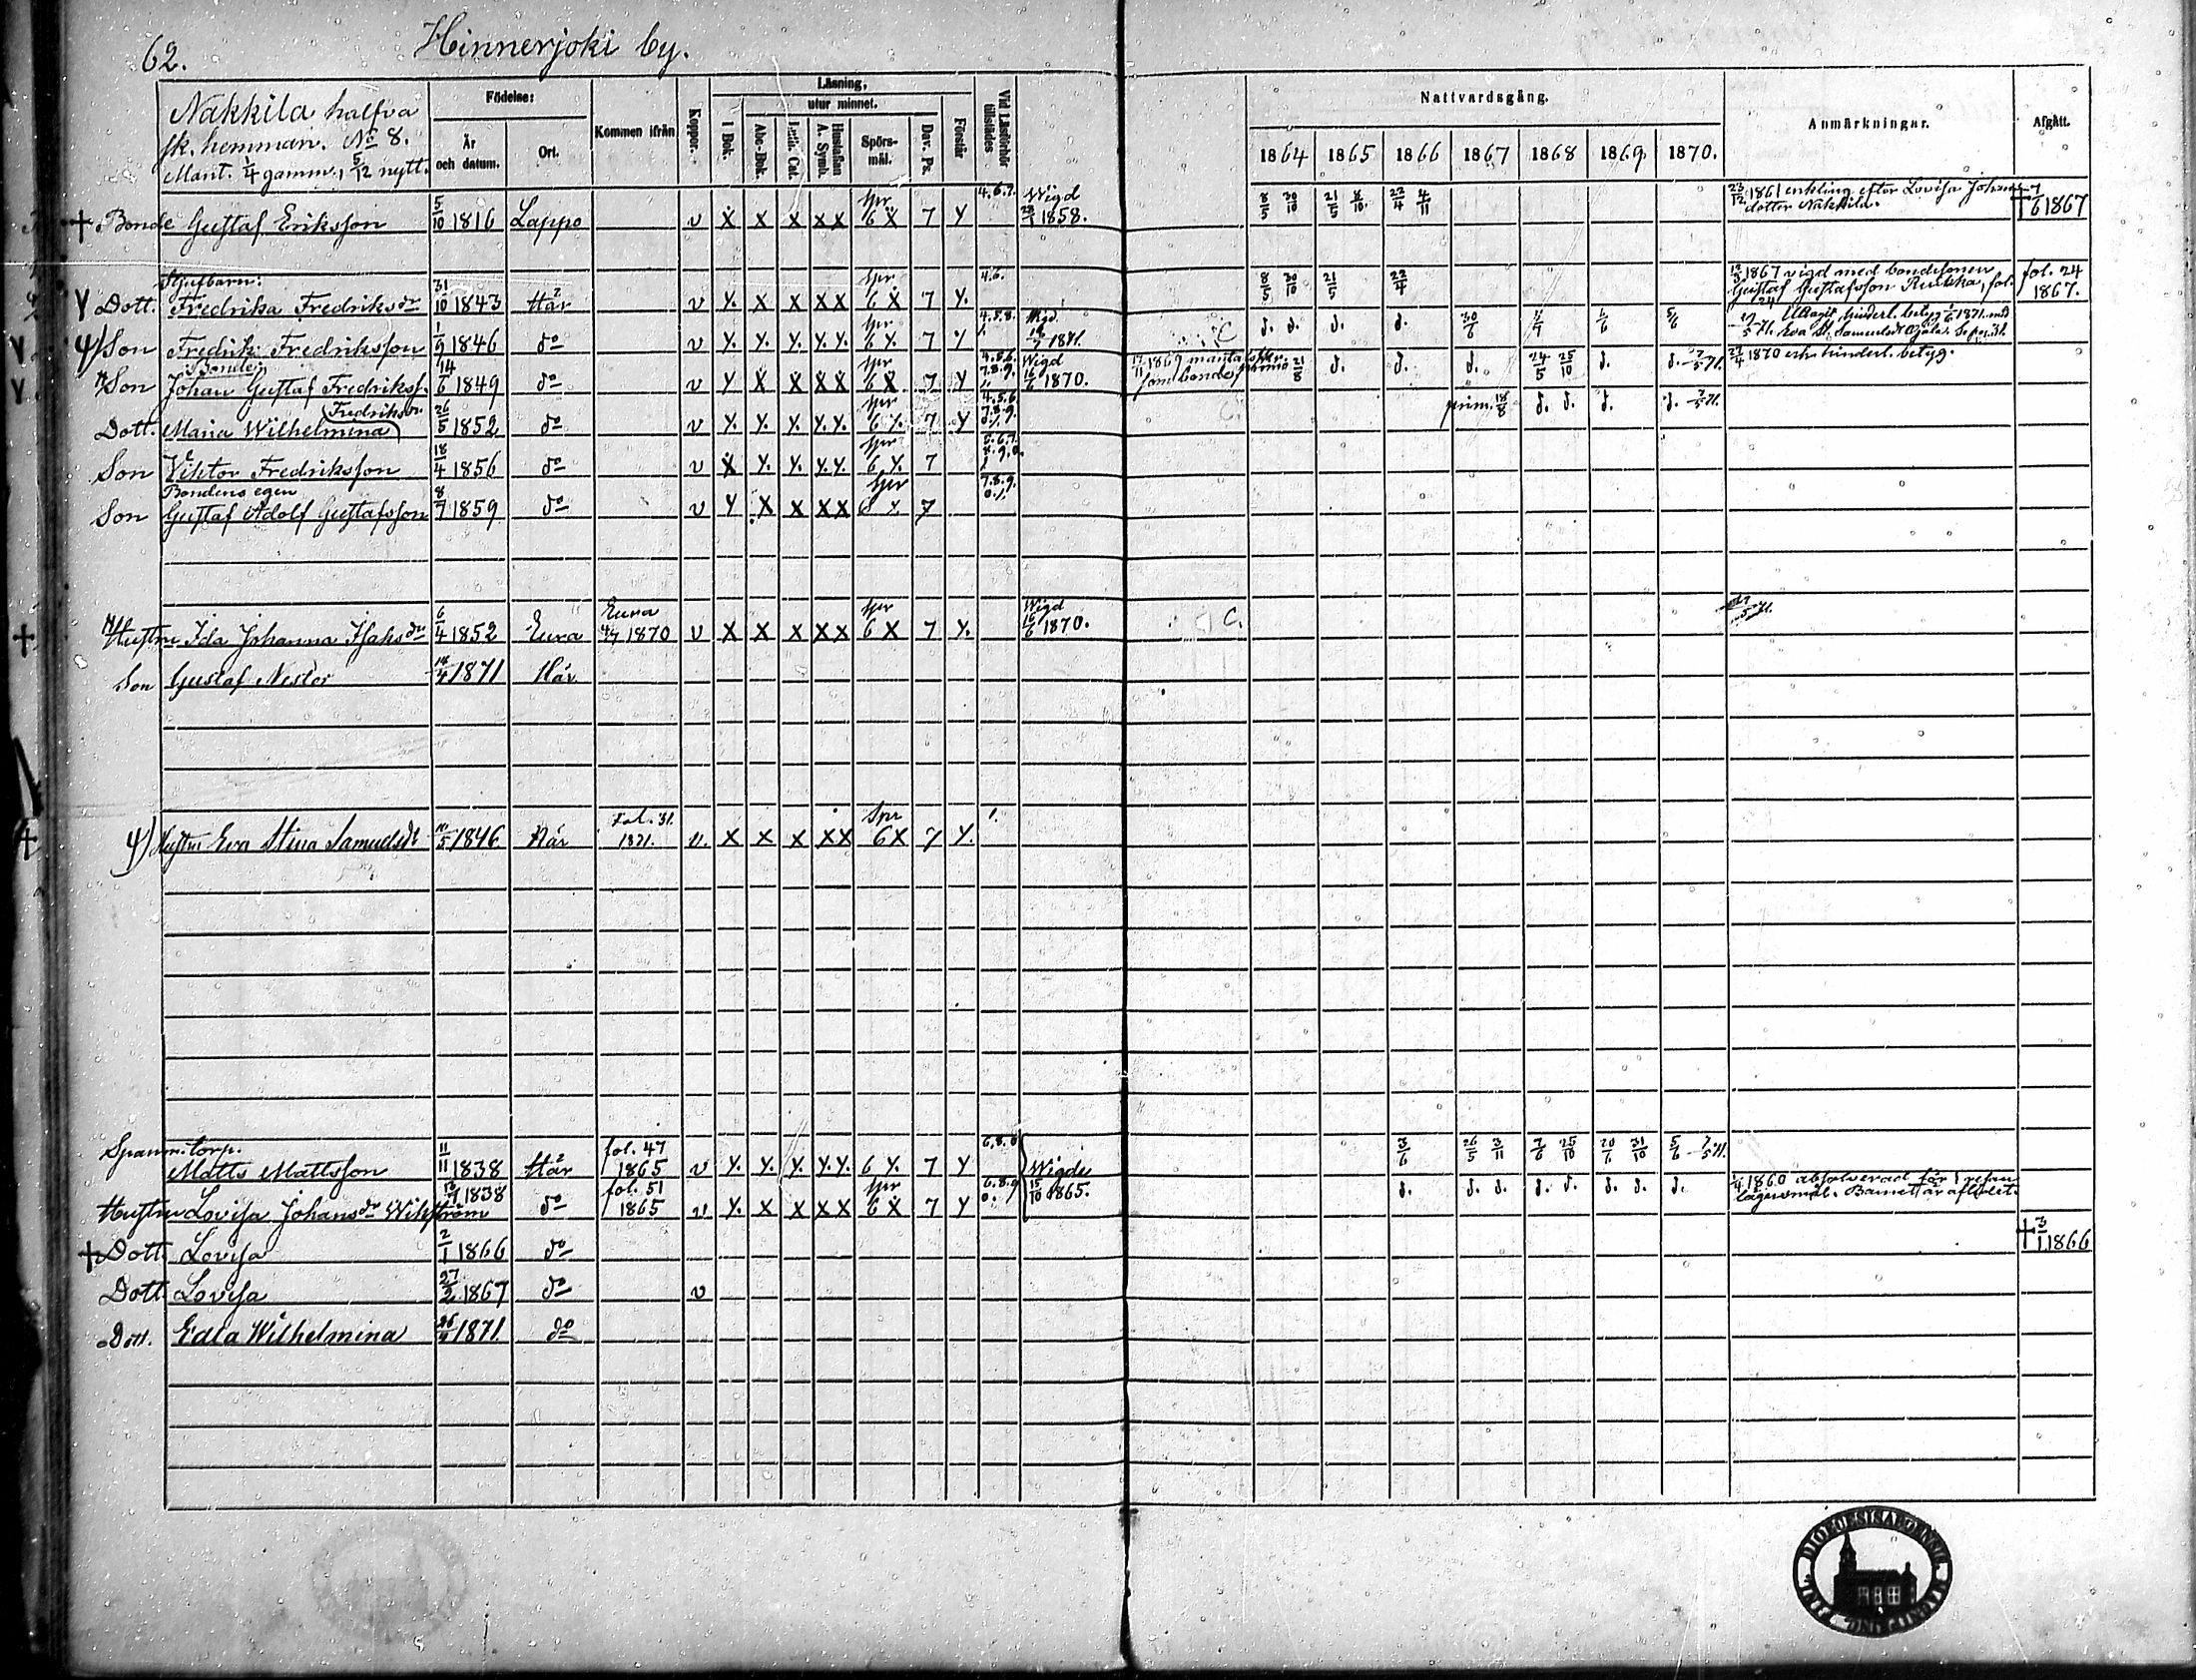 62.
Hinnerjoki by.
Nakkila halfva
sk. hemman. No 8.
Mant. 1/4 gamm., 5/12 nytt.
Födelse:
År och datum.
Ort.
Kommen ifrån
Koppor.
Läsning,
utur minnet.
I Bok.
Abc-Bok.
Luth. Cat.
Hustaflan A. Symb.
Spörs-mål.
Dav. Ps.
Förstår
Vid Läsförhör tillstädes
Nattvardsgång.
1864 1865 1866 1867 1868 1869. 1870.
Anmärkningar.
Afgått.
† Bonde Gustaf Eriksson 5/10 1816 Lappo v X X X XX spr 6 X 7 Y 4.6.7. Wigd 1858. 8/5 30/10 21/5 8/10. 22/4 4/11 23/12 1861 enkling efter Lovisa Johans dotter Nakkila. † 7/6 1867
Styfbarn:
Dott. Fredrika Fredriksdr 31/10 1843 Här v Y. X X XX spr 6 X 7 Y. 4.6. 8/5 30/10 21/5 22/4 1867 vigd med bondesonen Gustaf Gustafsson Ruskha, fol. 24 fol. 24 1867.
Son Fredrik Fredriksson 1/9 1846 do v Y. X Y. XX spr 6 Y. 7 Y 4.5.8. Wigd 1871. C d. d. d. d. 30/6 5/6
Bonde
Son Johan Gustaf Fredrikss. 14/6 1849 do v Y X X XX spr 6 X 7 Y 4.5.6. 7.8.9. Wigd 16/6 1870. 1869 som bonde 21/8 d. d. d. 24/5 25/10 d. d. 22/4 1870 erh. hinderl. betyg.
Dott. Maria Wilhelmina Fredriksdr 26/5 1852 do v Y. Y. Y. Y.Y. spr 6 Y. 7 Y 4.5.6 7.8.9. C. prim. 18/8 d. d. d. d.
Son Viktor Fredriksson 18/4 1856 do v X Y. Y. Y.Y. spr 6 Y. 7 5.6.7. 8.9.0.
Bondens egen
Son Gustaf Adolf Gustafsson 8/7 1859 do v Y X X XX spr 6 Y. 7 7.8.9. 0./.
Hustru Ida Johanna Isaksdr 6/4 1852 Eura Eura 4/7 1870 v X X X XX spr 6 X 7 Y. Wigd 16/6 1870. C.
Son Gustaf Nestor 14/4 1871 Här
Hustru Eva Stina Samuelsdt 1846 Här Fol. 31. 1871. v. X X X XX Spr 6X 7 Y. 1.
Spanm. torp.
Matts Mattsson 11/11 1838 Här fol. 47 1865 v Y. Y. Y. Y.Y. 6 Y. 7 Y 6.8.0 Wigde 15/10 1865. 3/6 26/5 3/11 7/6 25/10 20/6 31/10 5/6
Hustru Lovisa Johansdr Wikström 1838 do fol. 51 1865 v Y. X X XX spr 6 X 7 Y 6.8.9 0. d. d. d. d. d. d. d. d. 1860 absolverad för 1 resan lägersmål. Barnet är aflidet.
† Dott. Lovisa 2/1 1866 do † 3/1 1866
Dott. Lovisa 27/2 1867 do v
Dott. Edla Wilhelmina 1871 do